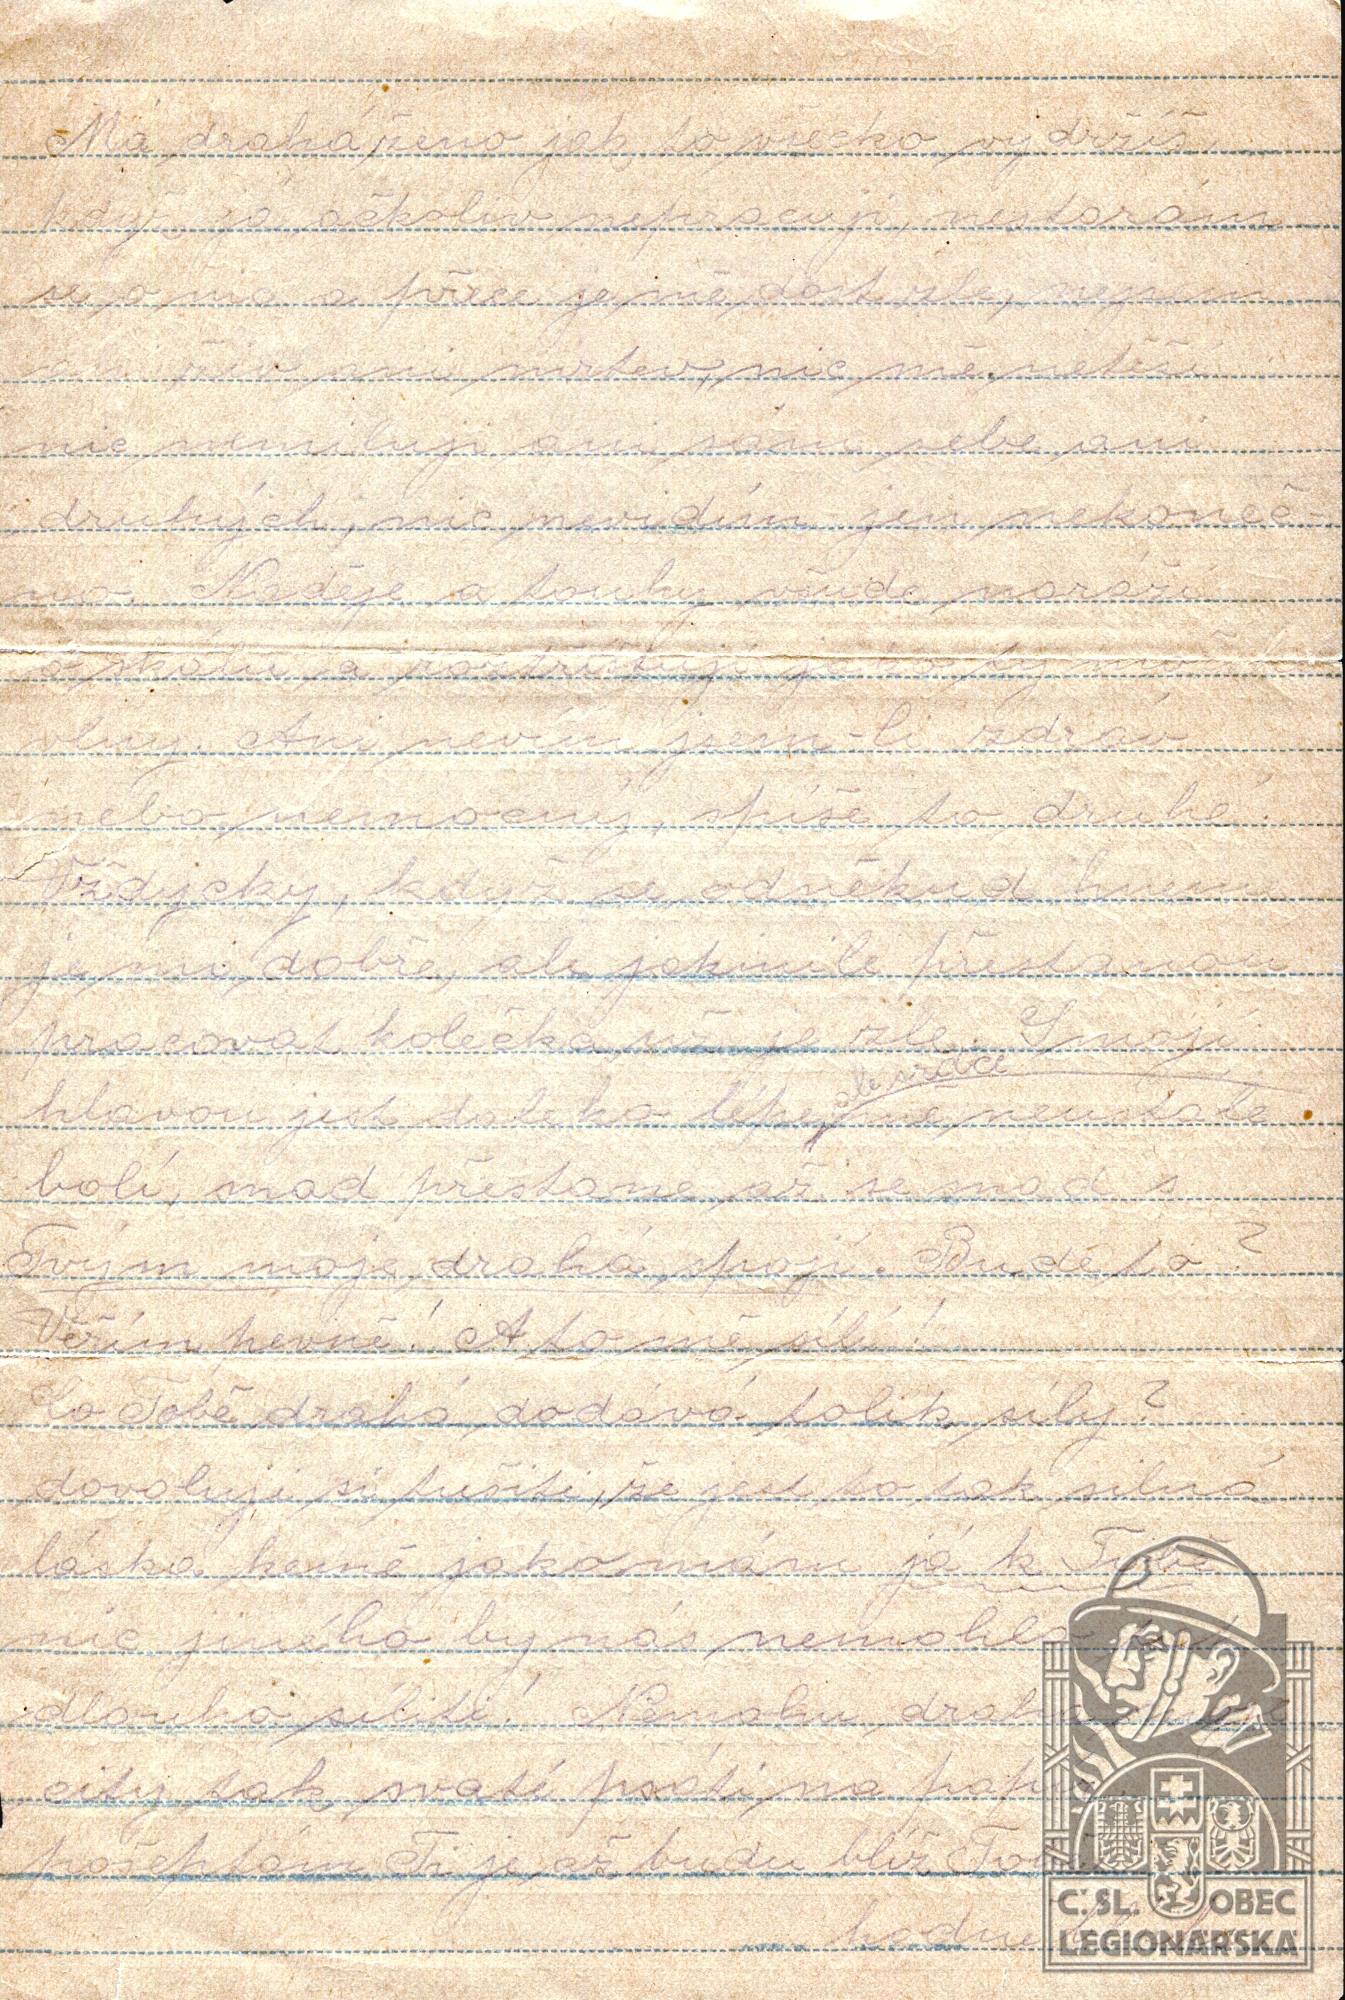 Má drahá ženo jak to všecko vydržíš
když já ačkoliv nepracuji, nestarám
se o nic a přece je mě dost zle, nejsem
ani živ ani mrtev, nic mě netěší
nic nemiluji ani sám sebe ani
druhých, nic nevidím jen nekoneč-
no. Naděje a touhy všude naráží
o skálu a roztřišťují jako ty
vlny. Ani nevím jsem-li zdráv
nebo nemocný, spíše to druhé!
Vždycky, když se odněkud hnem
je mi dobře, ale jakmile přestanou
pracovat kolečka už je zle. S mojí
hlavou jest daleko lépe, ale srdce mě neustále
bolí, snad přestane až se snad s
Tvým moje drahá, spojí. Bude to?
Věřím pevně! A to mě sílí!
Co Tobě drahá dodává tolik síly?
dovoluji si tušiti, že jest to tak silná
láska kemě jako mám já k Tobě
nic jiného by nás nemohlo
dlouho síliti! Nemohu drahá
city tak svaté psáti na papír
pošeptám Ti je až budu blíž
hodně
Č. SL. OBEC
LEGIONÁŘSKÁ